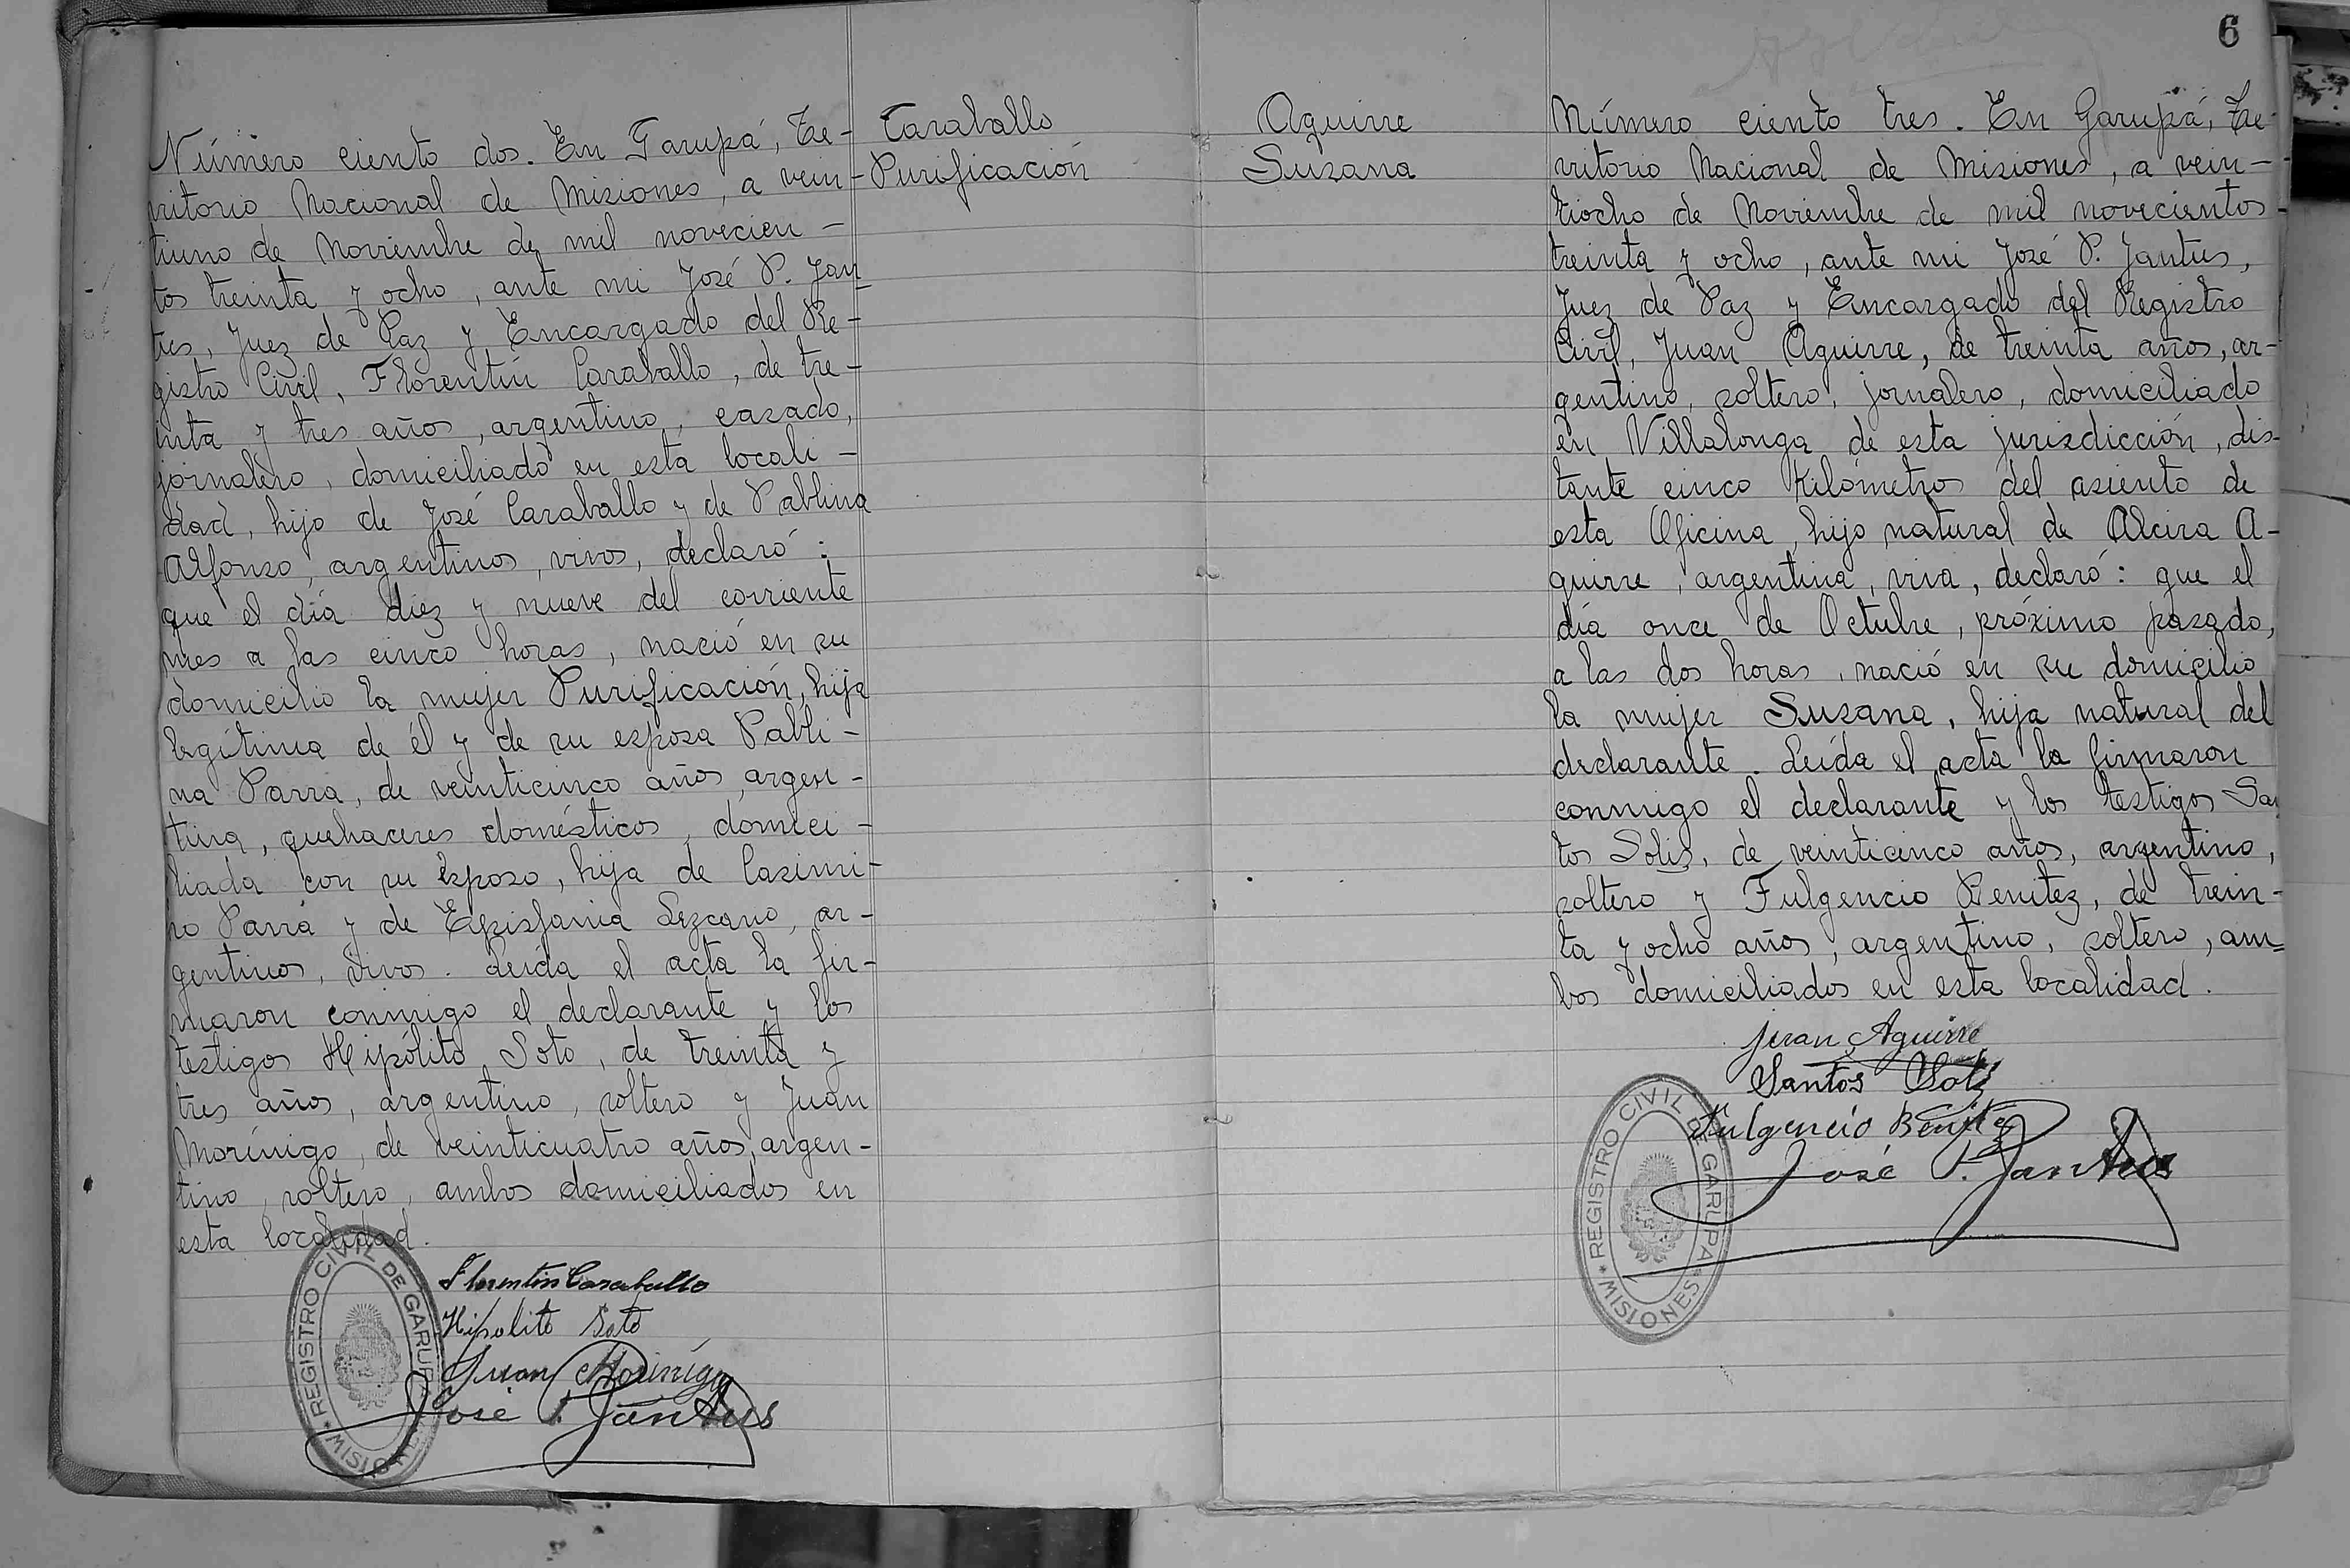 Número ciento dos. En Garupá, Te-
rritorio Nacional de Misiones, a vein-
tiuno de Noviembre de mil novecien-
tos treinta y ocho, ante mi José P. Jan
tus, Juez de Paz y Encargado del Re-
gistro Civil, Florentín Caraballo, de tre-
inta y tres años, argentino, casado,
jornalero, domiciliado en esta locali-
dad, hijo de José Caraballo y de Pablina
Alfonso, argentinos, vivos, declaró:
que el día diez y nueve del corriente
mes a las cinco horas, nació en su
domicilio la mujer Purificación, hija
legítima de él y de su esposa Pabli-
na Parra, de veinticinco años, argen-
tina, quehaceres domésticos, domici-
liada con su esposo, hija de Casimi-
ro Parra y de Episfania Lezcano, ar-
gentinos, vivos. Leída el acta la fir-
maron conmigo el declarante y los
testigos Hipólito Soto, de treinta y
tres años, argentino, soltero y Juan
Morínigo, de veinticuatro años, argen-
tino, soltero, ambos domiciliados en
esta localidad.
Florentin Caraballo
Hipolito Soto
Juan Morinigo
José P. Jantus
REGISTRO CIVIL DE GARUPA
MISIONES
Caraballo
Purificación
6
Aguirre
Susana
Número ciento tres. En Garupá, Te-
rritorio Nacional de Misiones, a vein-
tiocho de Noviembre de mil novecientos
treinta y ocho, ante mi José P. Jantus,
Juez de Paz y Encargado del Registro
Civil, Juan Aguirre, de treinta años, ar-
gentino, soltero, jornalero, domiciliado
en Villalonga de esta jurisdicción, dis-
tante cinco Kilómetros del asiento de
esta Oficina, hijo natural de Alcira A-
guirre, argentina, viva, declaró: que el
día once de Octubre, próximo pasado,
a las dos horas, nació en su domicilio
la mujer Susana, hija natural del
declarante. Leída el acta la firmaron
conmigo el declarante y los testigos San
tos Solis, de veinticinco años, argentino,
soltero y Fulgencio Benitez, de trein-
ta y ocho años, argentino, soltero, am-
bos domiciliados en esta localidad.
Juan Aguirre
Santos Solis
Fulgencio Benitez
José P. Jantus
REGISTRO CIVIL DE GARUPA
MISIONES